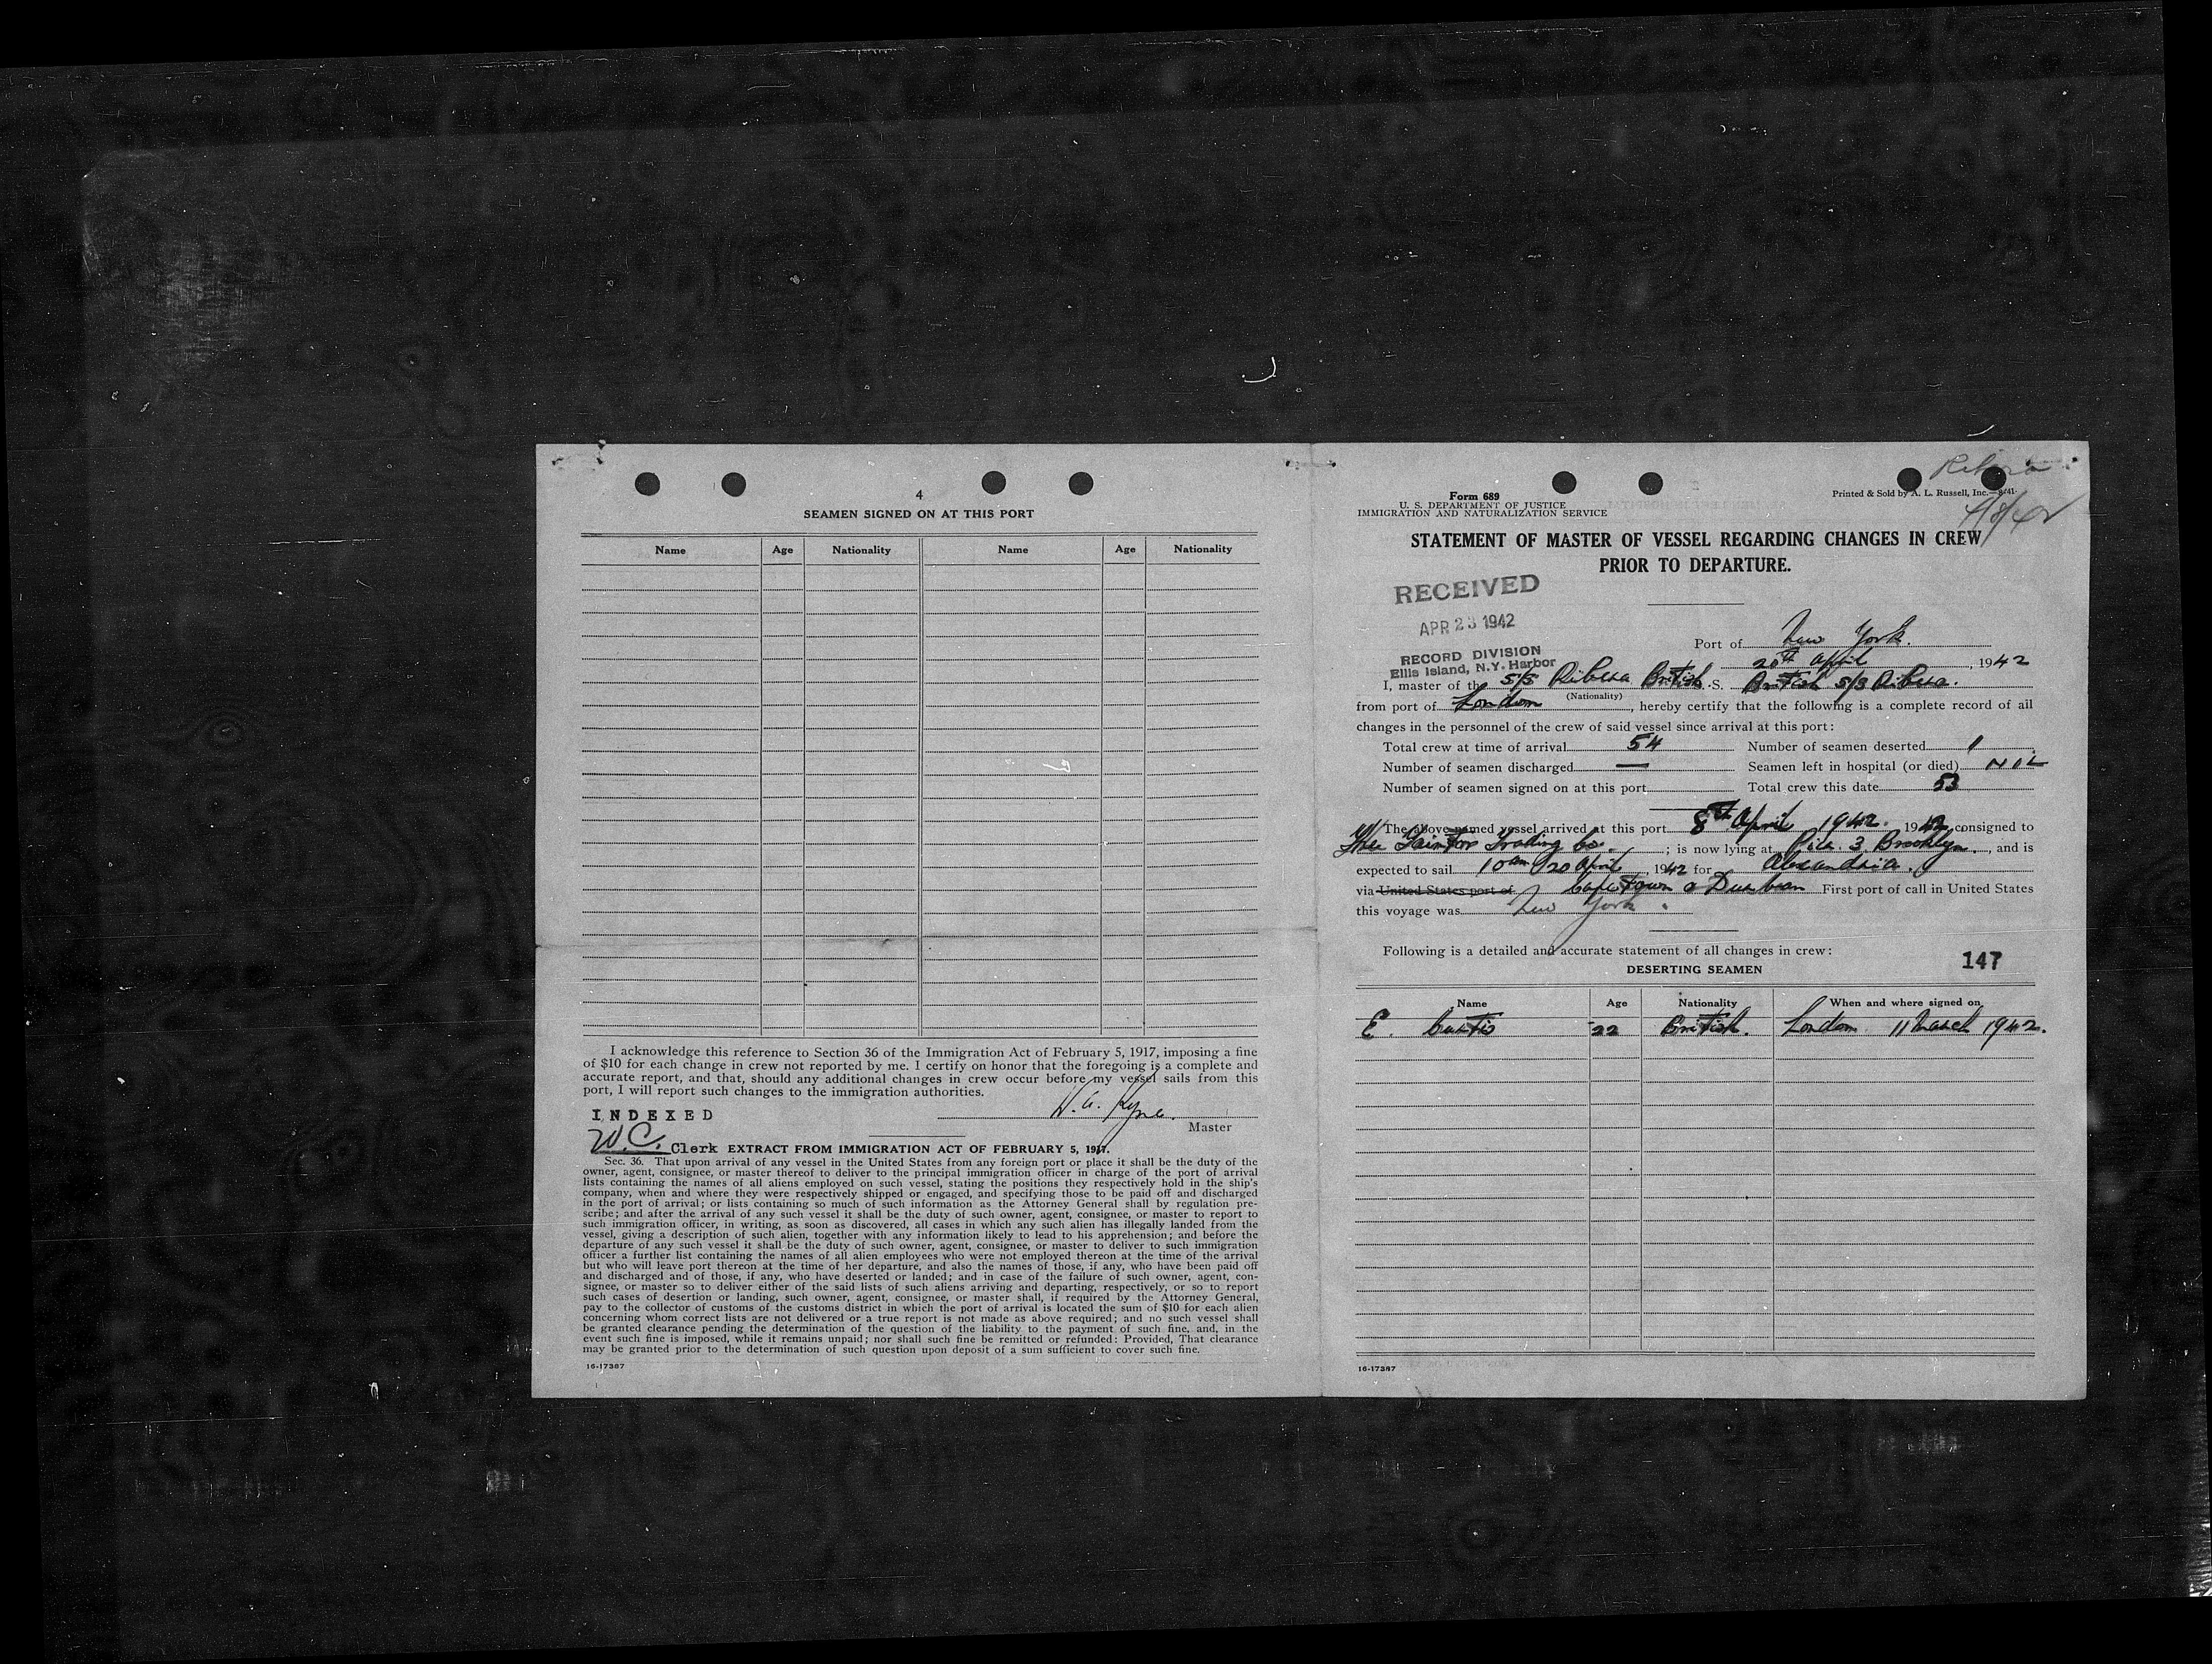 4
SEAMEN SIGNED ON AT THIS PORT
Name Age Nationality Name Age Nationality
I acknowledge this reference to Section 36 of the Immigration Act of February 5, 1917, imposing a fine
of $10 for each change in crew not reported by me. I certify on honor that the foregoing is a complete and
accurate report, and that, should any additional changes in crew occur before my vessel sails from this
port, I will report such changes to the immigration authorities.
INDEXED
Master
W.C. Clerk EXTRACT FROM IMMIGRATION ACT OF FEBRUARY 5, 1917.
Sec. 36. That upon arrival of any vessel in the United States from any foreign port or place it shall be the duty of the
owner, agent, consignee, or master thereof to deliver to the principal immigration officer in charge of the port of arrival
lists containing the names of all aliens employed on such vessel, stating the positions they respectively hold in the ship's
company, when and where they were respectively shipped or engaged, and specifying those to be paid off and discharged
in the port of arrival; or lists containing so much of such information as the Attorney General shall by regulation pre-
scribe; and after the arrival of any such vessel it shall be the duty of such owner, agent, consignee, or master to report to
such immigration officer, in writing, as soon as discovered, all cases in which any such alien has illegally landed from the
vessel, giving a description of such alien, together with any information likely to lead to his apprehension; and before the
departure of any such vessel it shall be the duty of such owner, agent, consignee, or master to deliver to such immigration
officer a further list containing the names of all alien employees who were not employed thereon at the time of the arrival
but who will leave port thereon at the time of her departure, and also the names of those, if any, who have been paid off
and discharged and of those, if any, who have deserted or landed; and in case of the failure of such owner, agent, con-
signee, or master so to deliver either of the said lists of such aliens arriving and departing, respectively, or so to report
such cases of desertion or landing, such owner, agent, consignee, or master shall, if required by the Attorney General,
pay to the collector of customs of the customs district in which the port of arrival is located the sum of $10 for each alien
concerning whom correct lists are not delivered or a true report is not made as above required; and no such vessel shall
be granted clearance pending the determination of the question of the liability to the payment of such fine, and, in the
event such fine is imposed, while it remains unpaid; nor shall such fine be remitted or refunded: Provided, That clearance
may be granted prior to the determination of such question upon deposit of a sum sufficient to cover such fine.
16-17387
Form 689
U. S. DEPARTMENT OF JUSTICE
IMMIGRATION AND NATURALIZATION SERVICE
Printed & Sold by A. L. Russell, Inc.—8/41
4/8/42
STATEMENT OF MASTER OF VESSEL REGARDING CHANGES IN CREW
PRIOR TO DEPARTURE.
RECEIVED
APR 23 1942
RECORD DIVISION
Ellis Island, N.Y. Harbor
Port of New York.
20th April, 1942
I, master of the S/S Ribera British S. S. British S/S Ribera.
(Nationality)
from port of London, hereby certify that the following is a complete record of all
changes in the personnel of the crew of said vessel since arrival at this port:
Total crew at time of arrival 54 Number of seamen deserted 1
Number of seamen discharged — Seamen left in hospital (or died) NIL
Number of seamen signed on at this port Total crew this date 53
The above-named vessel arrived at this port 8th April 1942. 1942, consigned to
Trading Co. ; is now lying at Pier 3 Brooklyn, and is
expected to sail 10 am 20 April, 1942 for Alexandria.
via United States port of Capetown & Durban First port of call in United States
this voyage was New York.
Following is a detailed and accurate statement of all changes in crew:
147
DESERTING SEAMEN
Name Age Nationality When and where signed on
E. Curtis 22 British. London 11 March 1942.
16-17387